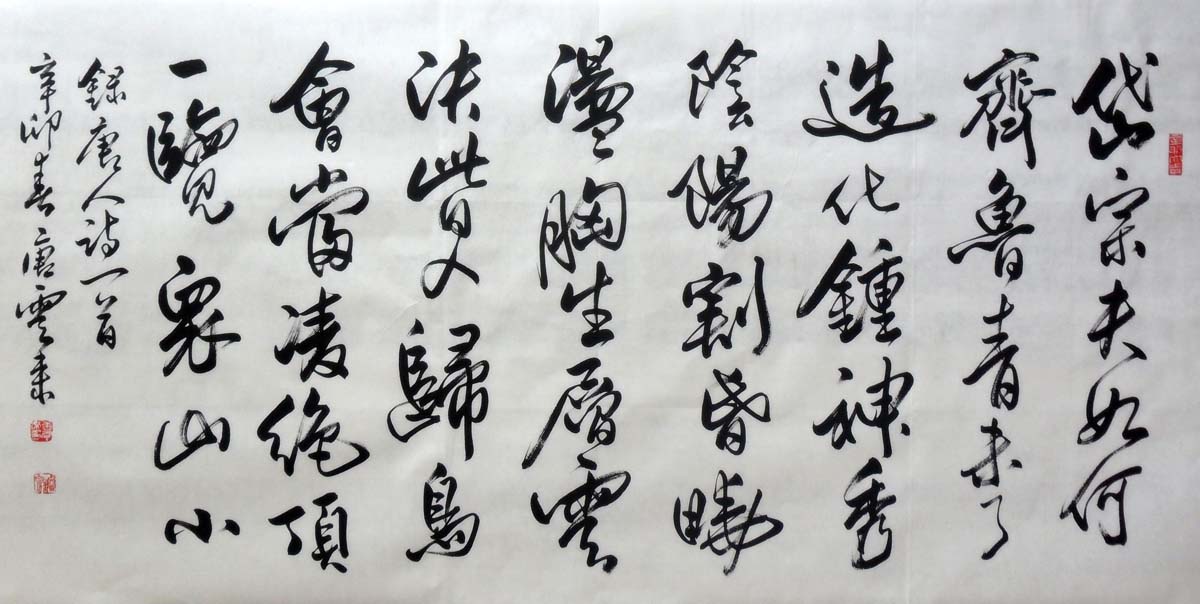 岱宗夫如何
齊魯青未了
造化鍾神秀
陰陽割昏曉
盪胸生層雲
決眥入歸鳥
會當凌絕頂
一覽眾山小
錄唐人詩一首
辛卯春唐雲來